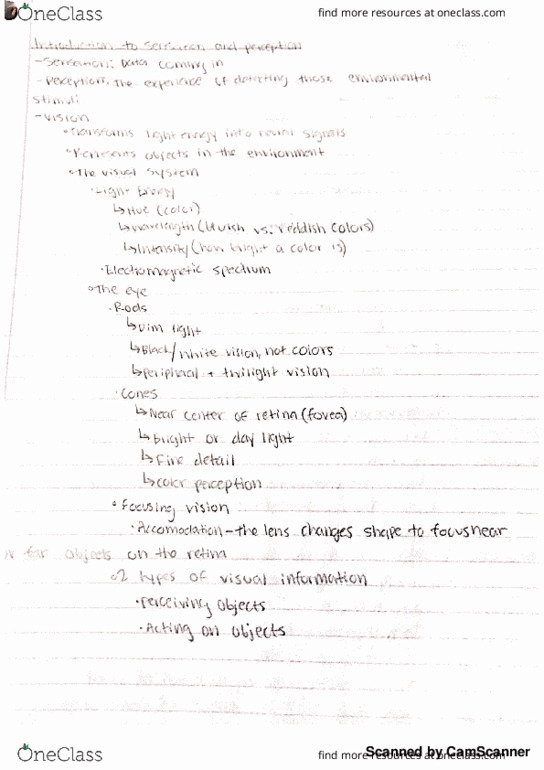 OneClass
find more resources at oneclass.com
Introduction to sensation and perception
- Sensation: Data coming in
- Perception: The experience of detecting those environmental
stimuli
- Vision
Transforms light energy into neural signals
Represents objects in the environment
The visual system
Light Energy
↳ Hue (color)
↳ Wavelength (bluish vs. reddish colors)
↳ Intensity (how bright a color is)
Electromagnetic spectrum
The eye
Rods
↳ Dim light
↳ Black/white vision, not colors
↳ Peripheral + twilight vision
Cones
↳ Near center of retina (fovea)
↳ Bright or day light
↳ Fine detail
↳ Color perception
Focusing vision
Accomodation - the lens changes shape to focus near
or far objects on the retina
2 types of visual information
Perceiving objects
Acting on objects
OneClass
find more resources at oneclass.com
Scanned by CamScanner